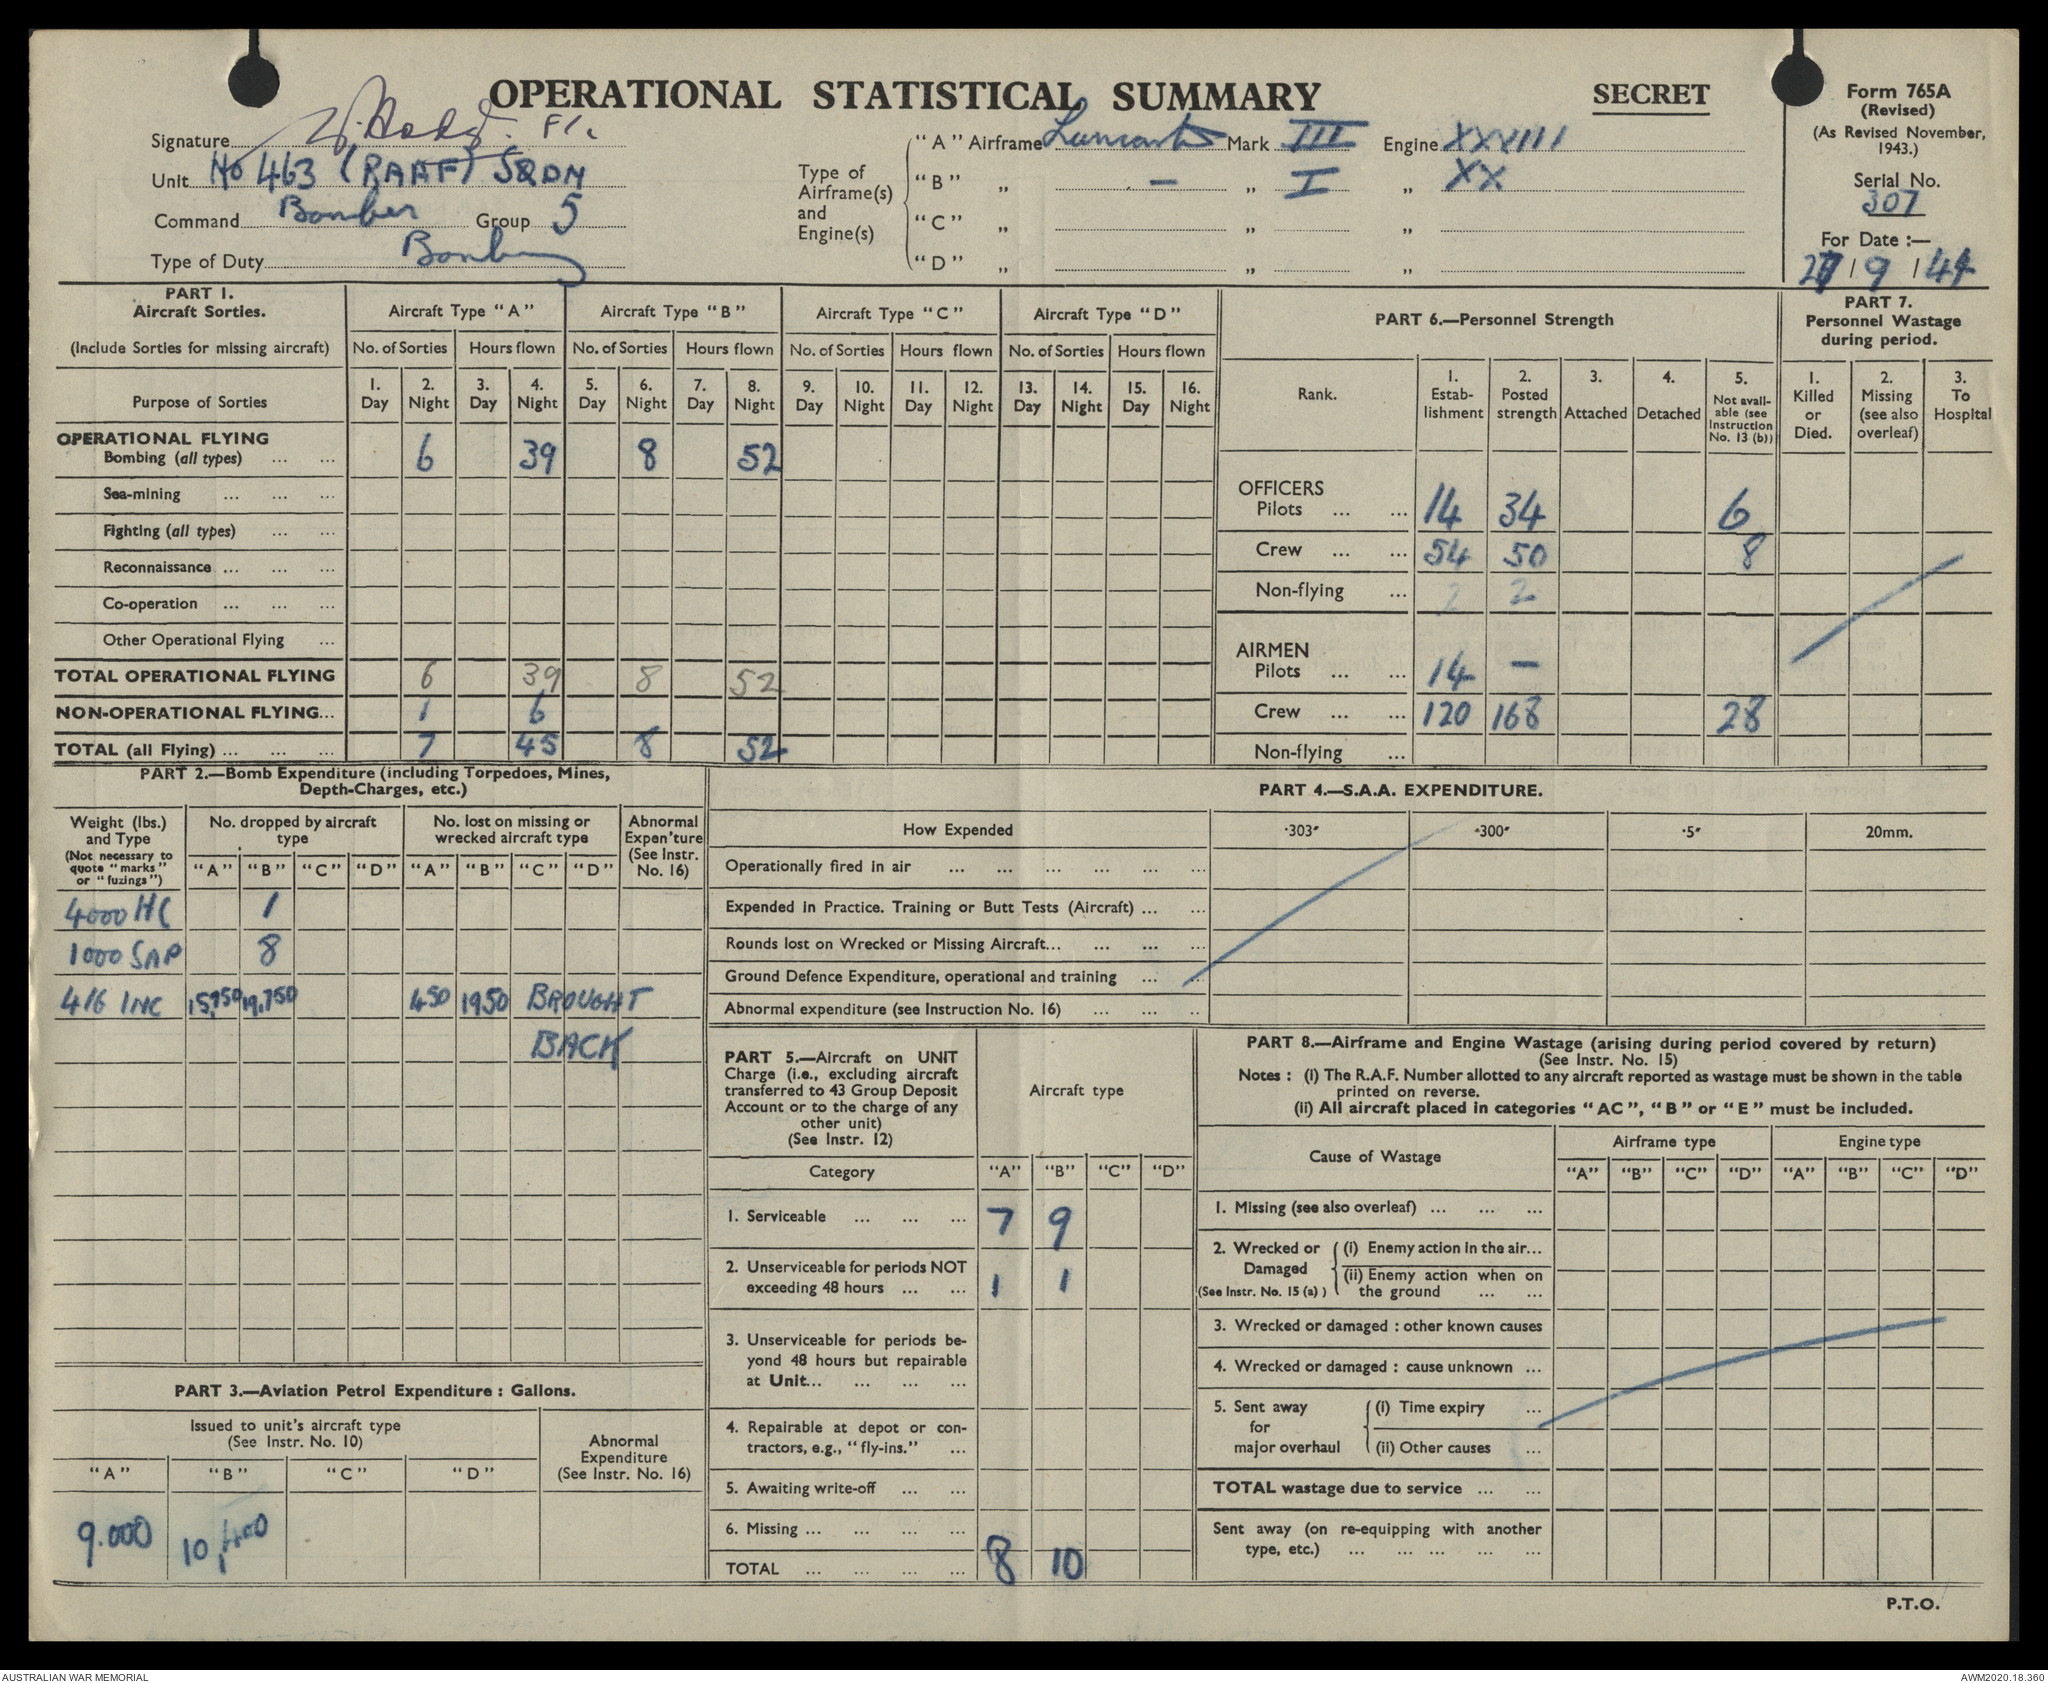 OPERATIONAL STATISTICAL SUMMARY
SECRET
Form 765A
(Revised)
(As Revised November, 1943.)
Serial No.
307
For Date :—
27 / 9 / 44
Signature
Unit No 463 (RAAF) SQDN
Command Bomber Group 5
Type of Duty Bombing
Type of Airframe(s) and Engine(s)
"A" Airframe Lancaster Mark III Engine XXVIII
"B" „ — „ I „ XX
"C" „ „ „
"D" „ „ „
PART 1.
Aircraft Sorties.
(Include Sorties for missing aircraft)
Aircraft Type "A" Aircraft Type "B" Aircraft Type "C" Aircraft Type "D"
No. of Sorties Hours flown No. of Sorties Hours flown No. of Sorties Hours flown No. of Sorties Hours flown
Purpose of Sorties
1. Day 2. Night 3. Day 4. Night 5. Day 6. Night 7. Day 8. Night 9. Day 10. Night 11. Day 12. Night 13. Day 14. Night 15. Day 16. Night
OPERATIONAL FLYING
Bombing (all types) ... ... 6 39 8 52
Sea-mining ... ... ...
Fighting (all types) ... ...
Reconnaissance ... ... ...
Co-operation ... ... ...
Other Operational Flying ...
TOTAL OPERATIONAL FLYING 6 39 8 52
NON-OPERATIONAL FLYING... 1 6
TOTAL (all Flying) ... ... ... 7 45 8 52
PART 6.—Personnel Strength
Rank.
1. Estab-lishment
2. Posted strength
3. Attached
4. Detached
5. Not avail-able (see Instruction No. 13 (b))
OFFICERS
Pilots ... ... 14 34 6
Crew ... ... 54 50 8
Non-flying ... 2 2
AIRMEN
Pilots ... ... 14 —
Crew ... ... 120 168 28
Non-flying ...
PART 7.
Personnel Wastage during period.
1. Killed or Died.
2. Missing (see also overleaf)
3. To Hospital
PART 2.—Bomb Expenditure (including Torpedoes, Mines, Depth-Charges, etc.)
Weight (lbs.) and Type
(Not necessary to quote "marks" or "fuzings")
No. dropped by aircraft type
No. lost on missing or wrecked aircraft type
Abnormal Expen'ture (See Instr. No. 16)
"A" "B" "C" "D" "A" "B" "C" "D"
4000 HC 1
1000 SAP 8
4/6 INC 15,750 19,750 450 1950 BROUGHT
BACK
PART 3.—Aviation Petrol Expenditure : Gallons.
Issued to unit's aircraft type
(See Instr. No. 10)
Abnormal Expenditure (See Instr. No. 16)
"A" "B" "C" "D"
9.000 10,400
PART 4.—S.A.A. EXPENDITURE.
How Expended ·303″ ·300″ ·5″ 20mm.
Operationally fired in air ... ... ... ... ... ...
Expended in Practice. Training or Butt Tests (Aircraft) ... ...
Rounds lost on Wrecked or Missing Aircraft... ... ... ...
Ground Defence Expenditure, operational and training ... ...
Abnormal expenditure (see Instruction No. 16) ... ... ..
PART 5.—Aircraft on UNIT
Charge (i.e., excluding aircraft
transferred to 43 Group Deposit
Account or to the charge of any
other unit)
(See Instr. 12)
Aircraft type
Category "A" "B" "C" "D"
1. Serviceable ... ... ... 7 9
2. Unserviceable for periods NOT
exceeding 48 hours ... ... 1 1
3. Unserviceable for periods be-
yond 48 hours but repairable
at Unit... ... ... ...
4. Repairable at depot or con-
tractors, e.g., "fly-ins." ...
5. Awaiting write-off ... ...
6. Missing ... ... ... ...
TOTAL ... ... ... ... 8 10
PART 8.—Airframe and Engine Wastage (arising during period covered by return)
(See Instr. No. 15)
Notes : (i) The R.A.F. Number allotted to any aircraft reported as wastage must be shown in the table
printed on reverse.
(ii) All aircraft placed in categories "AC", "B" or "E" must be included.
Cause of Wastage
Airframe type Engine type
"A" "B" "C" "D" "A" "B" "C" "D"
1. Missing (see also overleaf) ... ... ...
2. Wrecked or Damaged (See Instr. No. 15 (a) )
(i) Enemy action in the air...
(ii) Enemy action when on the ground ... ...
3. Wrecked or damaged : other known causes
4. Wrecked or damaged : cause unknown ...
5. Sent away for major overhaul
(i) Time expiry ...
(ii) Other causes ...
TOTAL wastage due to service ... ...
Sent away (on re-equipping with another
type, etc.) ... ... ... ... ...
P.T.O.
AUSTRALIAN WAR MEMORIAL
AWM2020.18.360